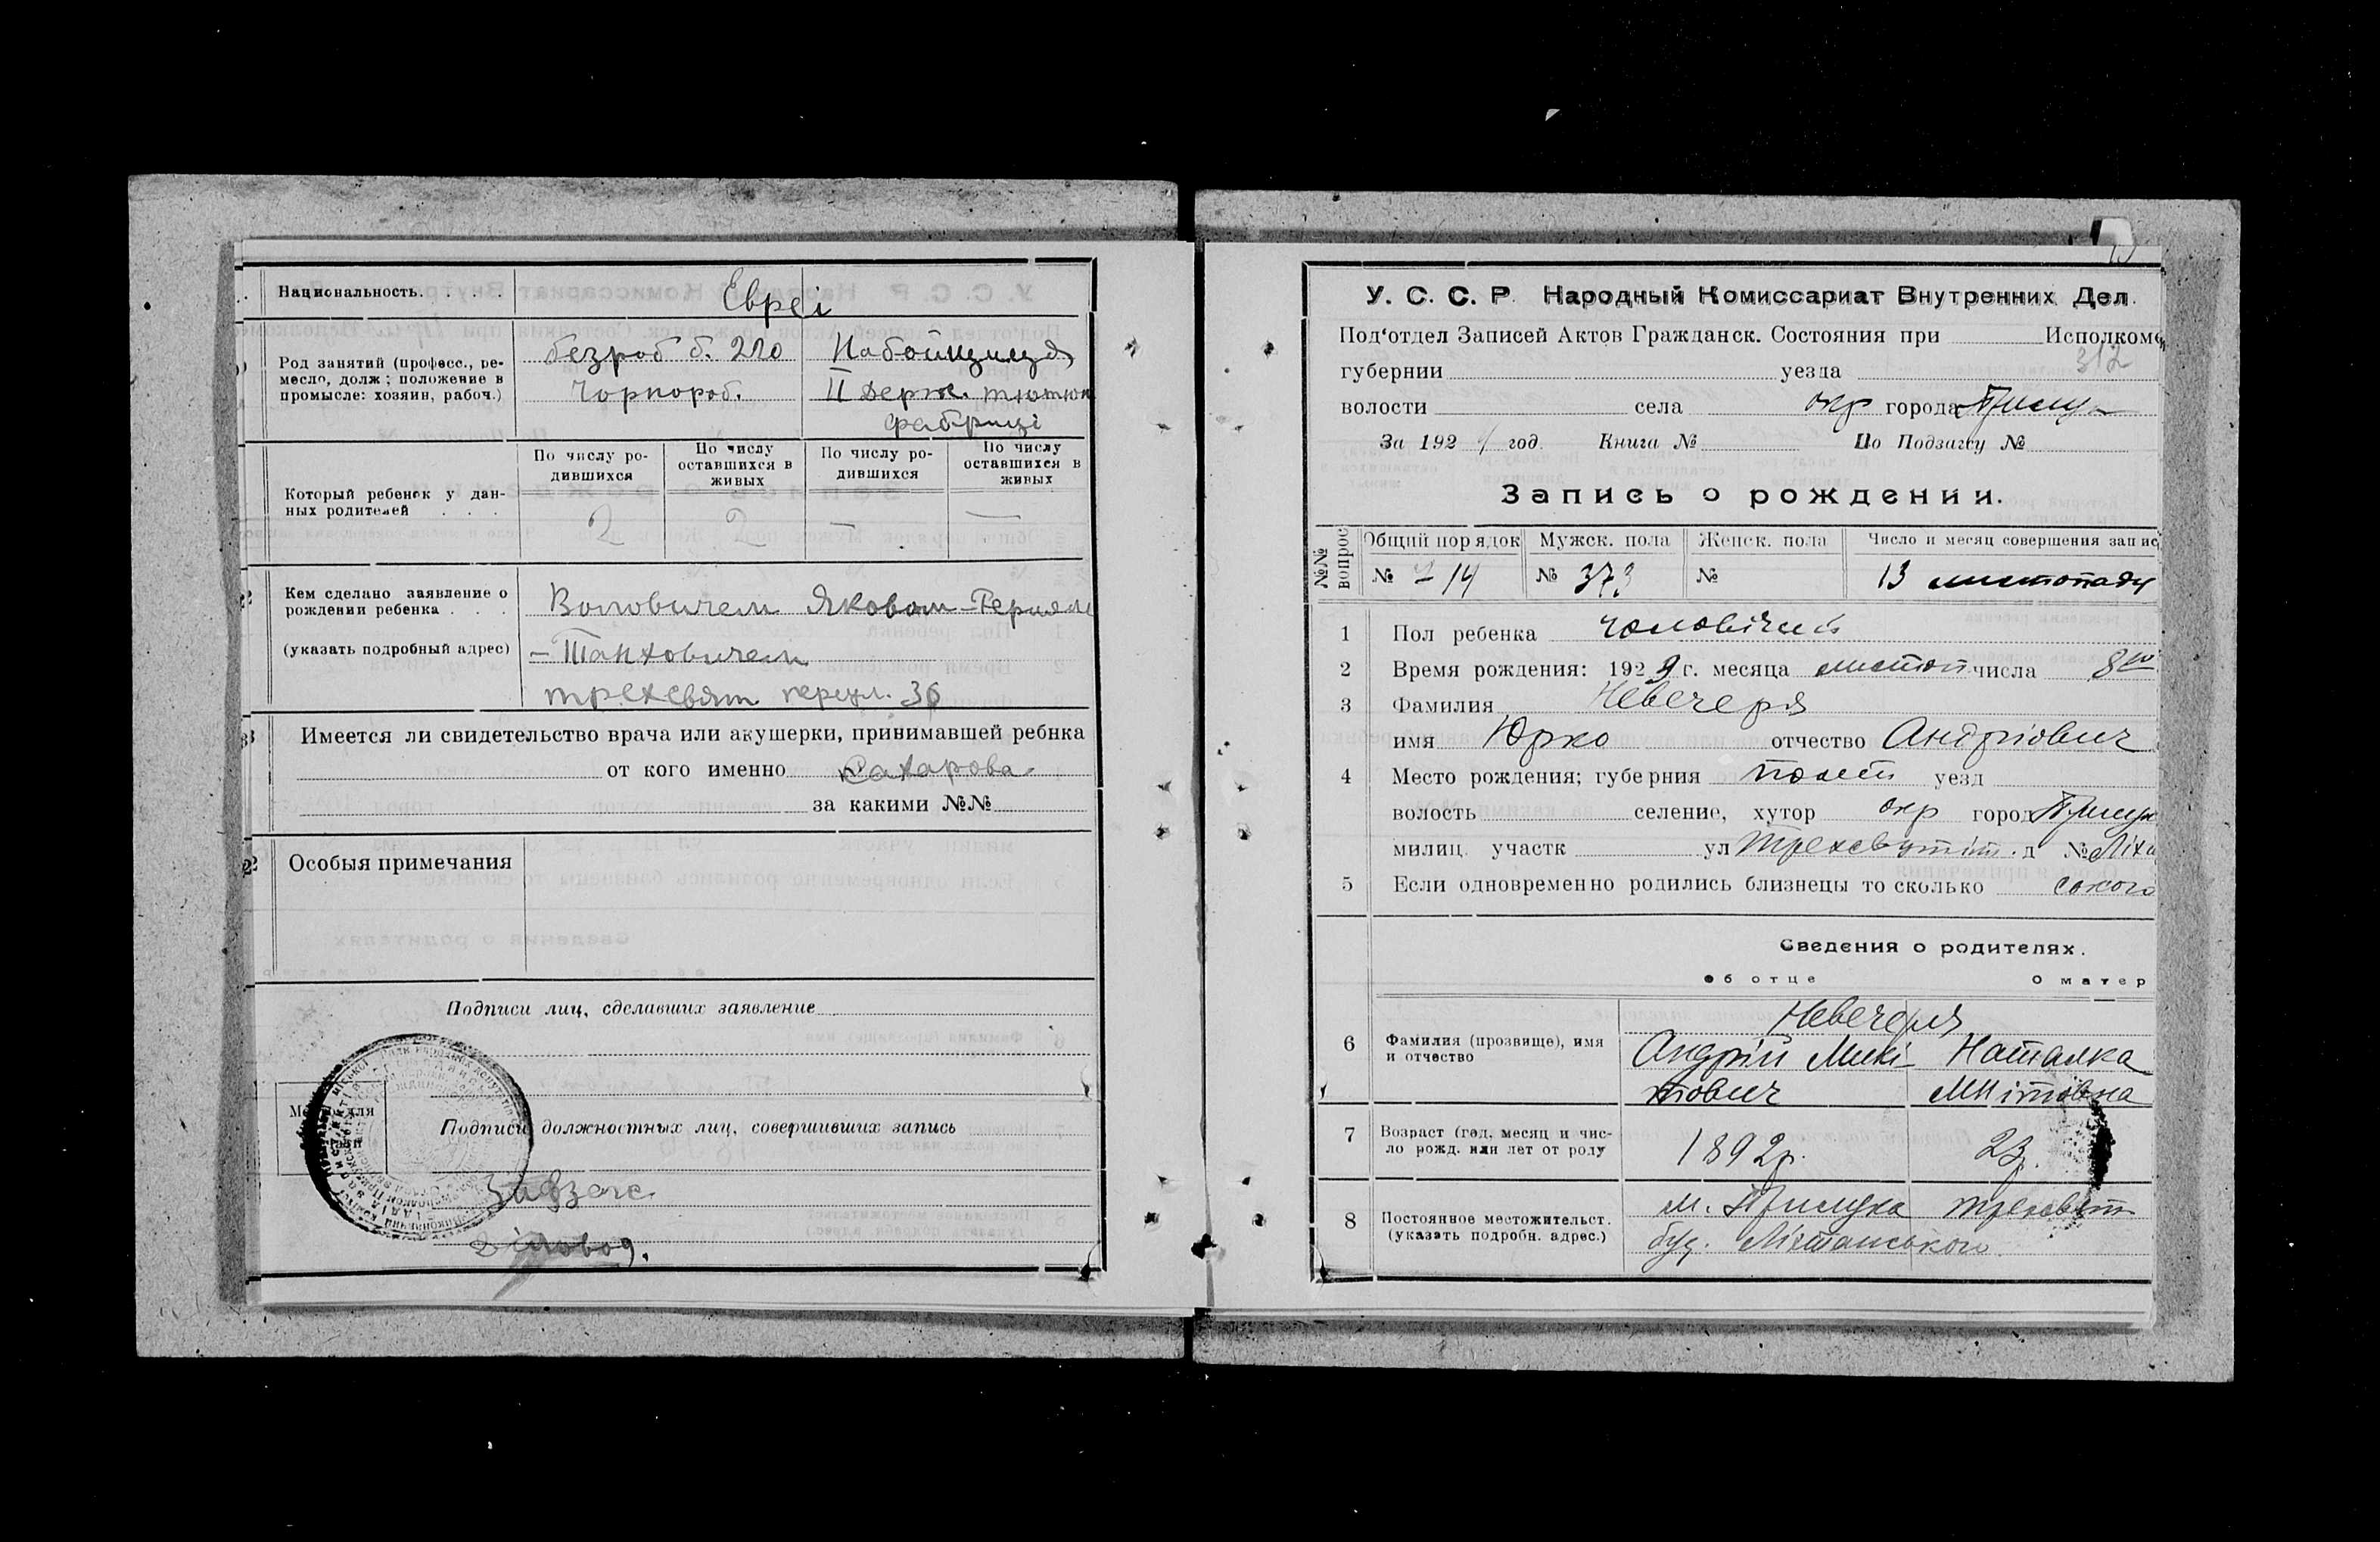 Национальность. . . .
Евреі
Род занятий (професс., ре-
месло, долж; положение в
промысле: хозяин, рабоч.)
безроб б.
Чорнороб.
Набойщиця
ІІ Держ. тютюн
фабриці
Который ребенок у дан-
ных родителей . . .
По числу ро-
дившихся
По числу
оставшихся в
живых
По числу ро-
дившихся
По числу
оставшихся в
живых
2 2 — —
Кем сделано заявление о
рождении ребенка . . .
(указать подробный адрес)
Воловичем Яковом-
трехсвят переул. 36
Имеется ли свидетельство врача или акушерки, принимавшей ребнка
от кого именно Сахарова
за какими №№
Особыя примечания
Подписи лиц, сделавших заявление
Подписи должностных лиц, совершивших запись
Завзагс
діловод.
У. С. С. Р. Народный Комиссариат Внутренних Дел.
Под'отдел Записей Актов Гражданск. Состояния при Исполкоме
312
губернии уезда
волости села окр города Прилук
За 192 год. Книга № По Подзагсу №
Запись о рождении.
№№ вопрос
Общий порядок Мужск. пола Женск. пола Число и месяц совершения запис
№ 714 № 373 № 13 листопаду
1 Пол ребенка чоловічий
2 Время рождения: 1929 г. месяца листоп числа 8го
3 Фамилия Невечеря
имя Юрко отчество Андріович
4 Место рождения; губерния уезд
волость селение, хутор окр город Прилук
милиц. участк ул Трехсвятит. д №
5 Если одновременно родились близнецы то сколько
Сведения о родителях.
об отце О матер
6 Фамилия (прозвище), имя
и отчество
Невечеря
Андрій Микі- Наталка
тович
7 Возраст (год, месяц и чис-
ло рожд. или лет от роду
1892р. 23р.
8 Постоянное местожительст.
(указать подробн. адрес.)
м. Прилука трехсвят
буд.